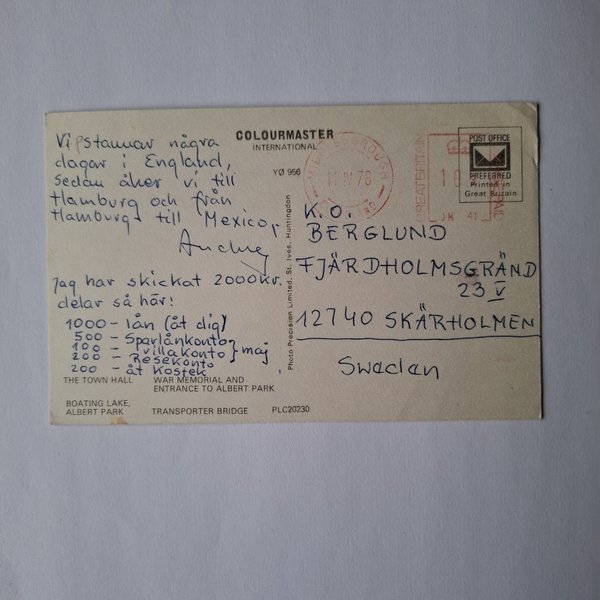 COLOURMASTER
INTERNATIONAL
YØ 956
Vi stannar några
dagar i England,
sedan åker vi till
Hamburg och från
Hamburg till Mexico,
Jag har skickat 2000kr.
delar så här:
1000 - lån (åt dig)
500 - Sparlånkonto
100 - villakonto } maj
200 - Resekonto
200 - åt Kostek
THE TOWN HALL
WAR MEMORIAL AND
ENTRANCE TO ALBERT PARK
BOATING LAKE,
ALBERT PARK
TRANSPORTER BRIDGE
PLC20230
Photo Precision Limited, St. Ives, Huntingdon
MIDDLESBROUGH
IV 76
GREAT BRITAIN
POSTAGE PAID
POST OFFICE
PREFERRED
Printed in
Great Britain
K.O.
BERGLUND
FJÄRDHOLMSGRÄND
23 V
12740 SKÄRHOLMEN
Sweden